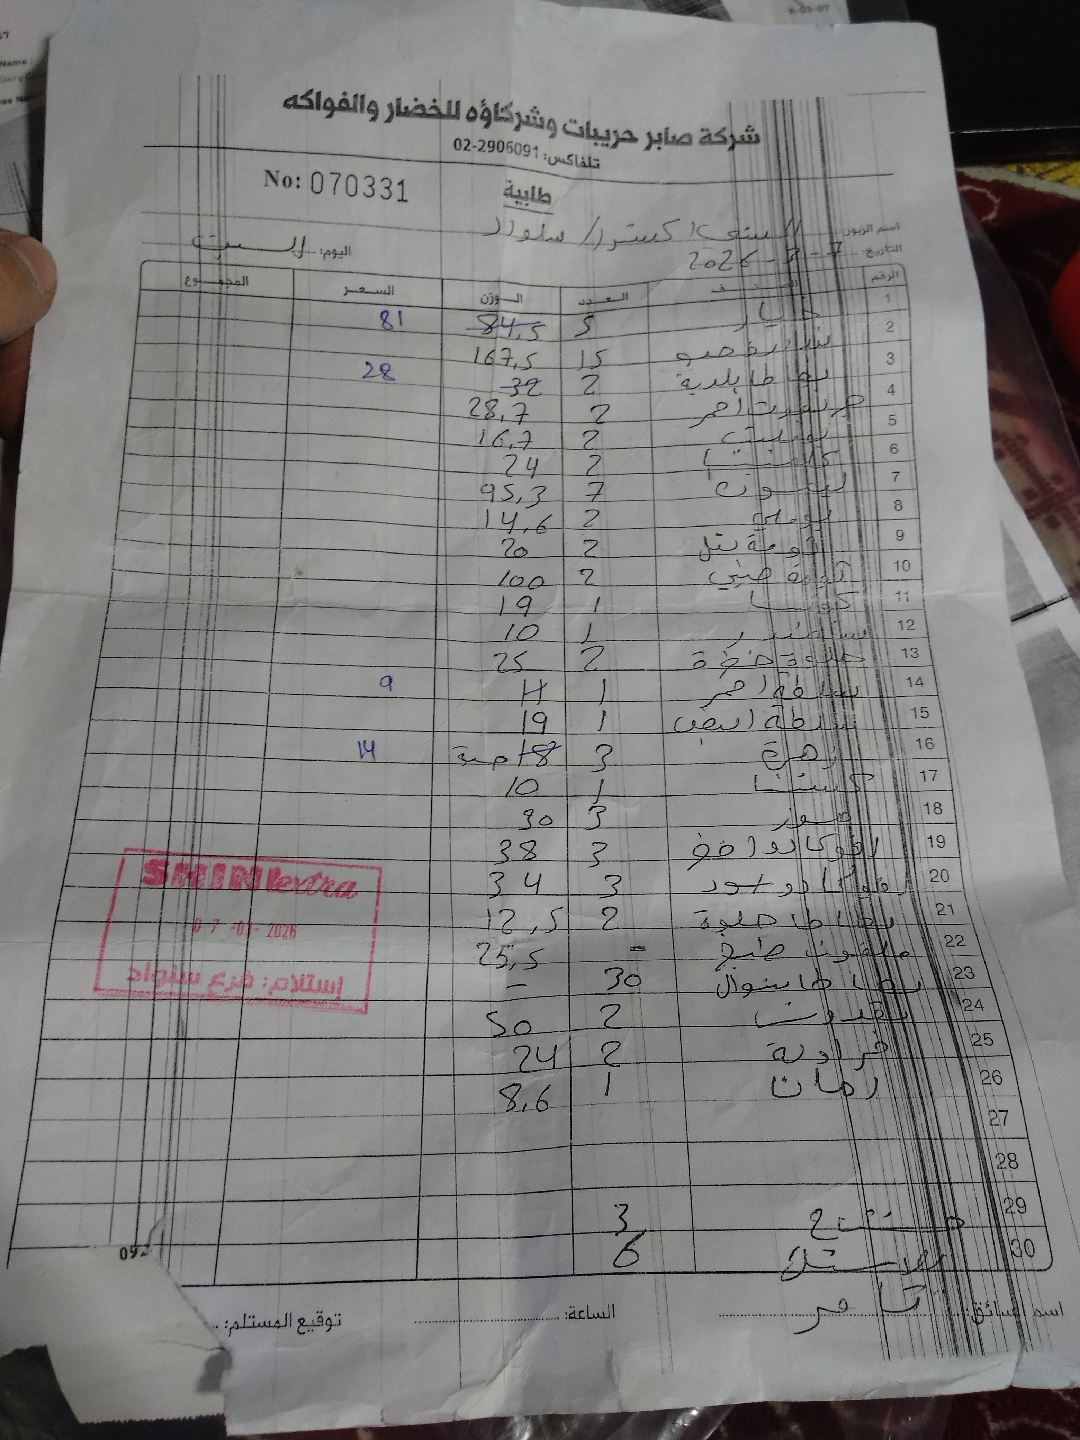 شركة صابر حريبات وشركاؤه للخضار والفواكه
تلفاكس: 02-2906091
No: 070331
طلبية
اسم الزبون: السني اكسترا / سلواد
التاريخ: 7 - 3 - 2026
اليوم: السبت
الرقم الصنف العدد الوزن السعر المجموع
1 خيار 5 84,5 81
2 بندورة حبو 15 167,5
3 بطاطا بلدية 2 32 28
4 جريفوت احمر 2 28,7
5 2 16,7
6 كلمنتينا 2 24
7 ليمون 7 95,3
8 بوملي 2 14,6
9 ثومة تل 2 20
10 ثومة صيني 2 100
11 كوسا 1 19
12 شمندر 1 10
13 2 25
14 سلطة احمر 1 11 9
15 سلطة ابيض 1 19
16 زهرة 3 18 حبة 14
17 كستنا 1 10
18 موز 3 30
19 افوكادو اخضر 3 38
20 افوكادو اسود 3 34
21 بطاطا حلوة 2 12,5
22 ملفوف طبيخ - 25,5
23 بطاطا 30 -
24 بقدونس 2 50
25 فراولة 2 24
26 رمان 1 8,6
27
28
29 3
30 بلاستك 6
SHINI extra
07 -03- 2026
إستلام: فرع سلواد
اسم السائق: ثامر
الساعة:
توقيع المستلم: